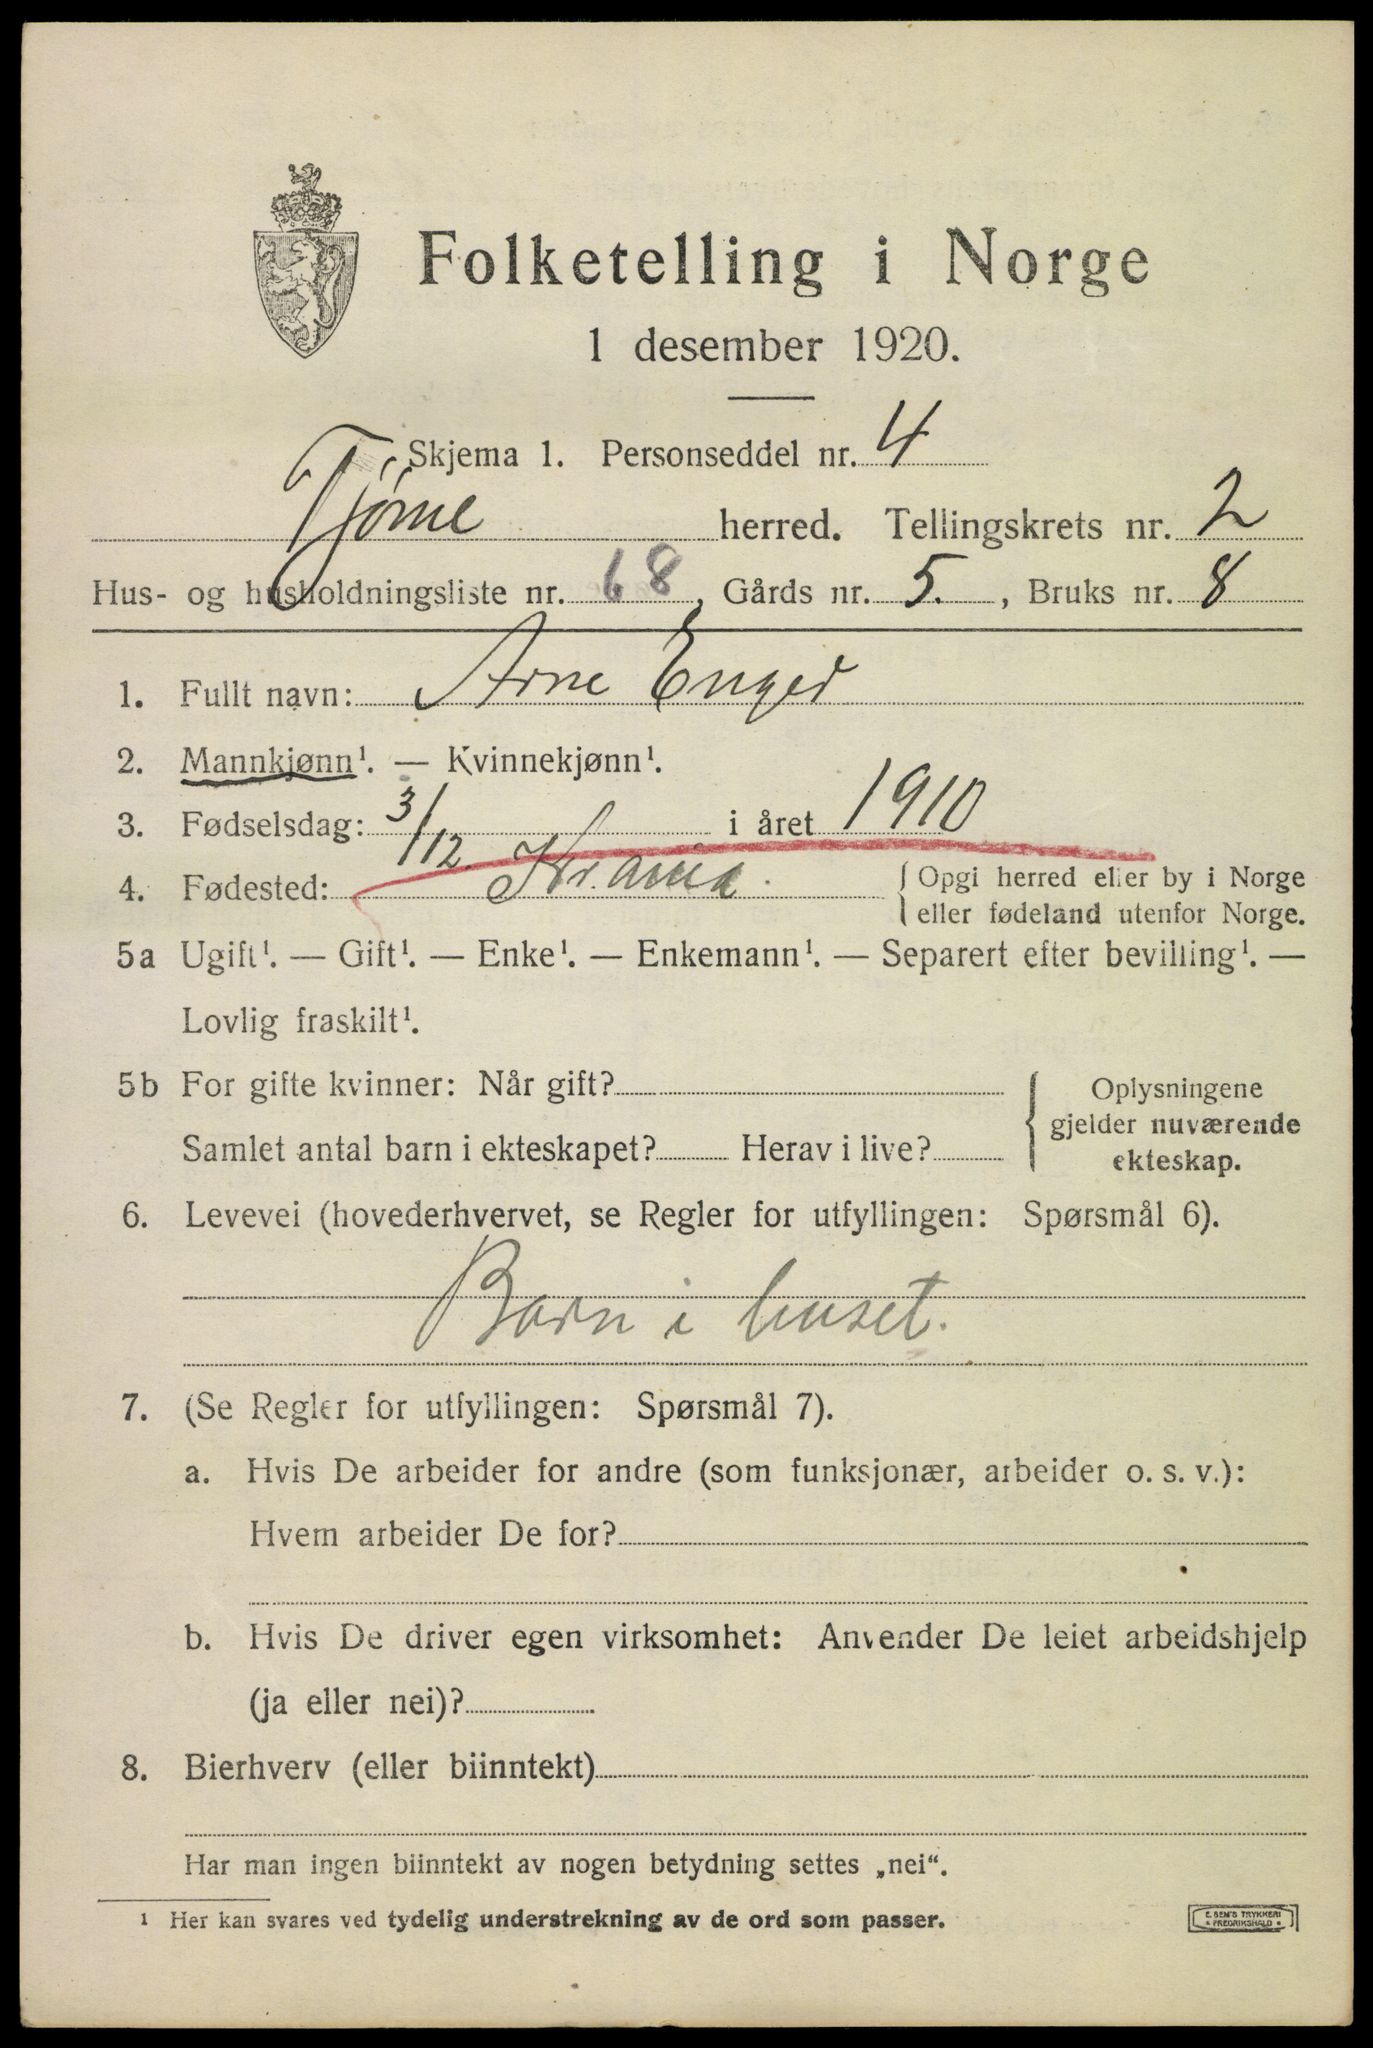 Folketelling i Norge
1 desember 1920.
Skjema 1. Personseddel nr. 4
Tjøme herred. Tellingskrets nr. 2
Hus- og husholdningsliste nr. 68, Gårds nr. 5., Bruks nr. 8
1. Fullt navn: Arne Enger
2. Mannkjønn¹. — Kvinnekjønn¹.
3. Fødselsdag: 3/12 i året 1910
4. Fødested: Kr.ania. { Opgi herred eller by i Norge
eller fødeland utenfor Norge.
5a Ugift¹. — Gift¹. — Enke¹. — Enkemann¹. — Separert efter bevilling¹. —
Lovlig fraskilt¹.
5b For gifte kvinner: Når gift? { Oplysningene
gjelder nuværende
Samlet antal barn i ekteskapet? Herav i live? ekteskap.
6. Levevei (hovederhvervet, se Regler for utfyllingen: Spørsmål 6).
Barn i huset.
7. (Se Regler for utfyllingen: Spørsmål 7).
a. Hvis De arbeider for andre (som funksjonær, arbeider o. s. v.):
Hvem arbeider De for?
b. Hvis De driver egen virksomhet: Anvender De leiet arbeidshjelp
(ja eller nei)?
8. Bierhverv (eller biinntekt)
Har man ingen biinntekt av nogen betydning settes „nei“.
¹ Her kan svares ved tydelig understrekning av de ord som passer.
E. SEM'S TRYKKERI
• FREDRIKSHALD •